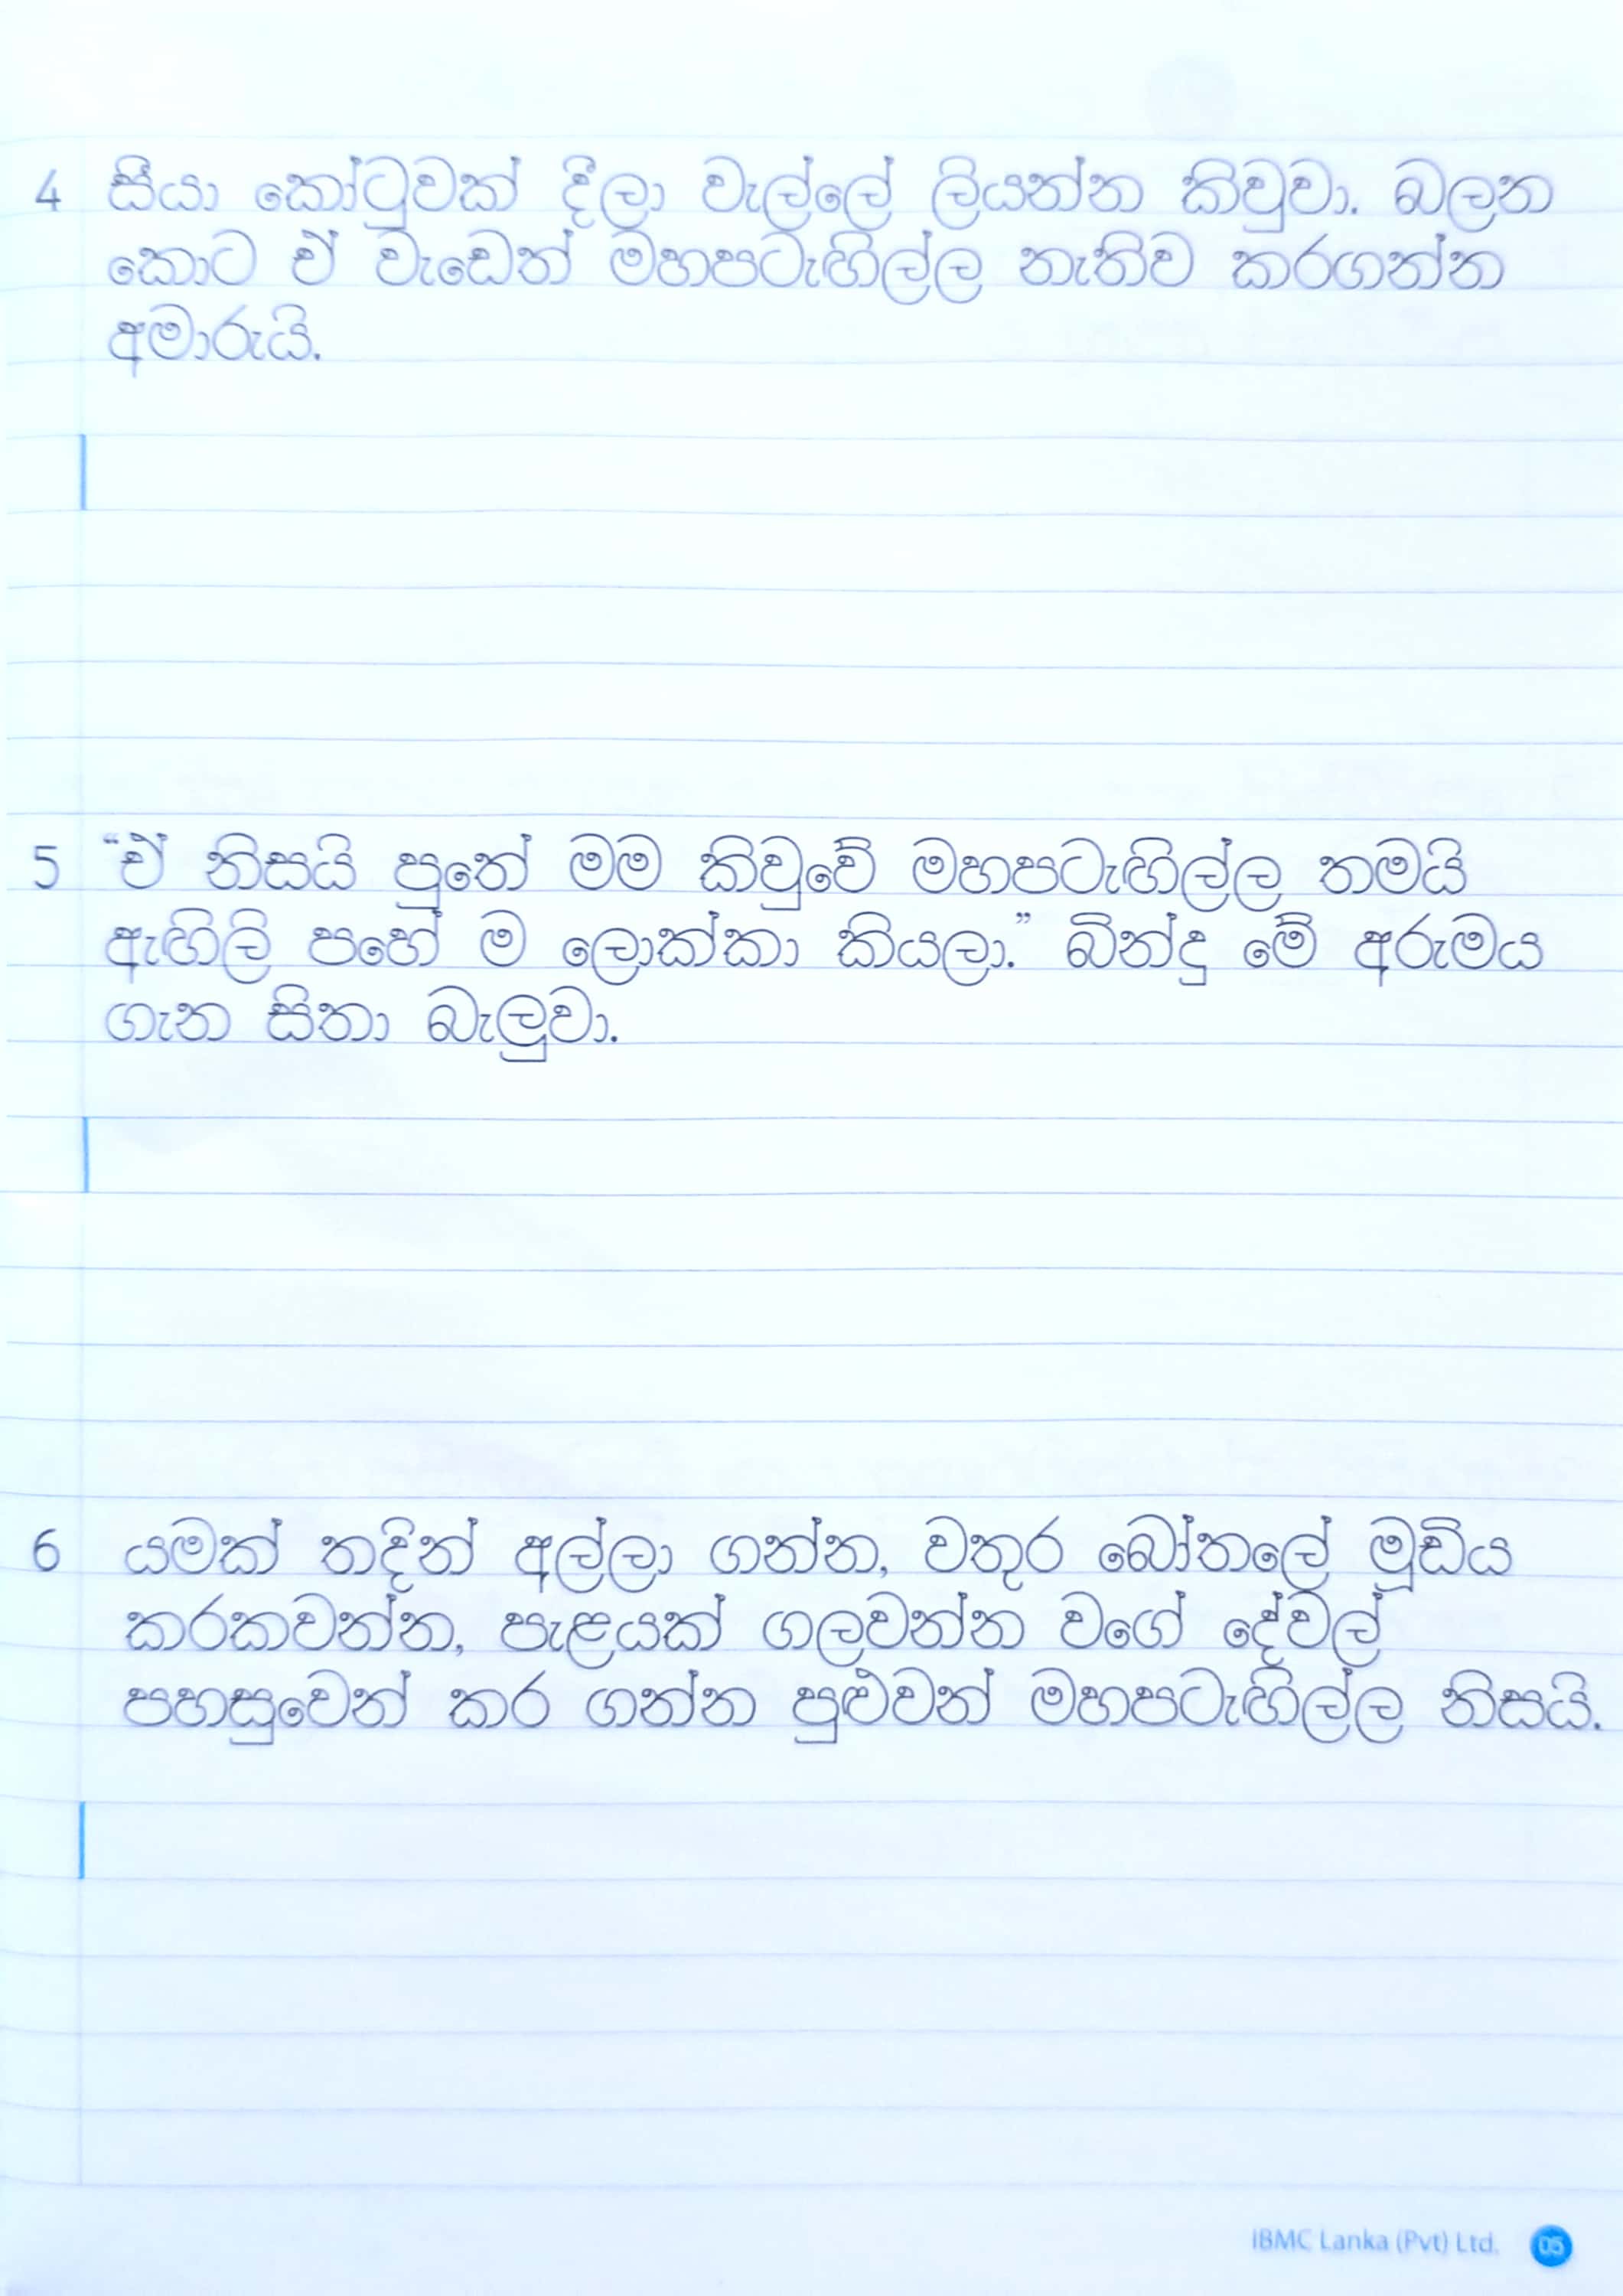 4 සීයා කෝටුවක් දීලා වැල්ලේ ලියන්න කිව්වා. බලන
කොට ඒ වැඩෙත් මහපටැඟිල්ල නැතිව කරගන්න
අමාරුයි.
5 “ඒ නිසයි පුතේ මම කිවුවේ මහපටැඟිල්ල තමයි
ඇඟිලි පහේ ම ලොක්කා කියලා.” බින්දු මේ අරුමය
ගැන සිතා බැලුවා.
6 යමක් තදින් අල්ලා ගන්න, වතුර බෝතලේ මූඩිය
කරකවන්න, පැළයක් ගලවන්න වගේ දේවල්
පහසුවෙන් කර ගන්න පුළුවන් මහපටැඟිල්ල නිසයි.
IBMC Lanka (Pvt) Ltd. 05